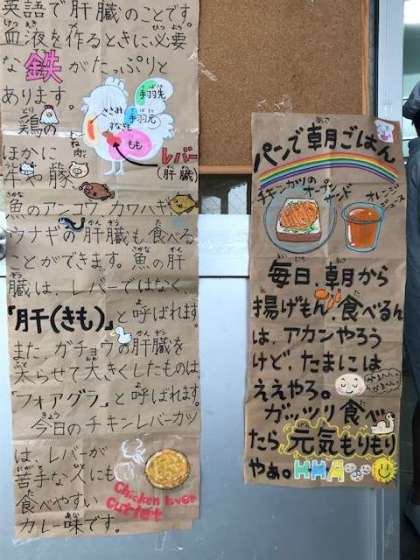 英語で肝臓のことです。
血液を作るときに必要
な鉄がたっぷりと
あります。
鶏の
ほかに
牛や豚、
魚のアンコウ、カワハギ、
ウナギの肝臓も食べる
ことができます。魚の肝
臓は、レバーではなく、
「肝(きも)」と呼ばれます。
また、ガチョウの肝臓を
太らせて大きくしたものは、
「フォアグラ」と呼ばれます。
今日のチキンレバーカツ
は、レバーが
苦手な人にも
食べやすい
カレー味です。
ささみ
手羽先
手羽元
むね肉
すなぎも
もも
レバー
(肝臓)
Chicken liver
cutlet
パンで朝ごはん
チキンカツのオープンサンド
オレンジジュース
毎日、朝から
揚げもん食べるん
は、アカンやろう
けど、たまには
ええやろ。
ガッツリ食べ
たら元気もりもり
やぁ。